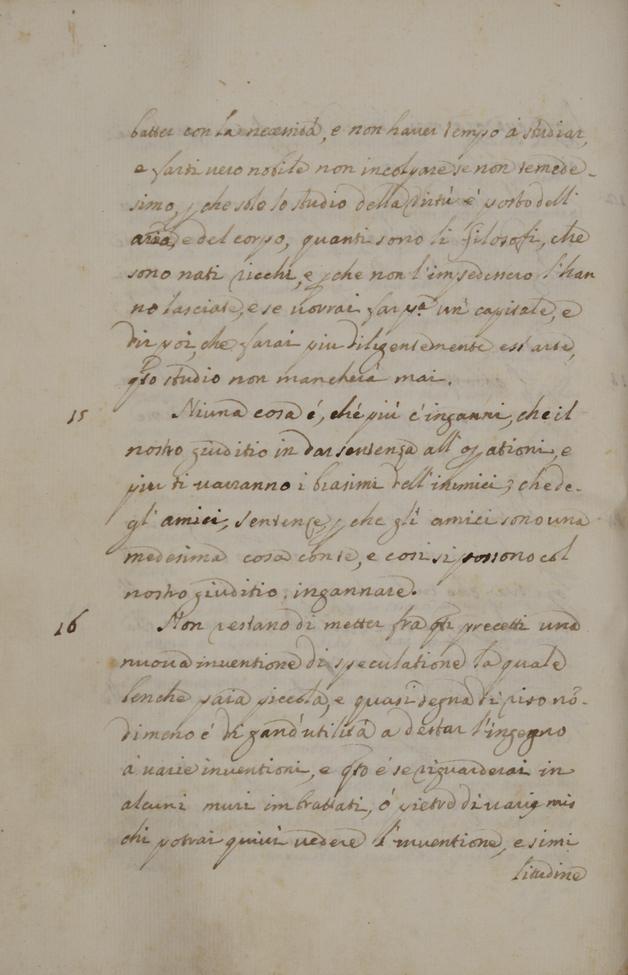 batter con la necessità, e non haver tempo à studiar,
e farti vero nobile non incolpare se non te mede-
simo, p che solo lo studio della Virtù è pasto dell'
aīa, e del corpo, quanti sono li filosofi, che
sono nati ricchi, e p che non l'impedencro l'han
no lasciate, e se vorrai far un' capitale, e
dir poi, che farai piu diligentemente ess' arte,
qsto studio non mancherà mai.
15 Niuna cosa é, ché piú c'inganni, che il
nostro giuditio in dar sentenza all' opationi, e
piu ti varranno i biasimi dell' inimici, che de-
gl' amici, sentenze, p che gli amici sono una
medesima cosa con te, e cosi si possono col
nostro giuditio, ingannare.
16 Non restano di metter fra qti precetti una
nuova inventione di speculatione la quale
benche paia piccola, e quasi degna di riso nō-
dimeno é di grand' utilità a destar l'ingegno
à varie inventioni, e qsto é se riguarderai in
alcuni muri imbrattati, ó pietre di varij mis
chi potrai quivi vedere l'inventione, e simi
litudine